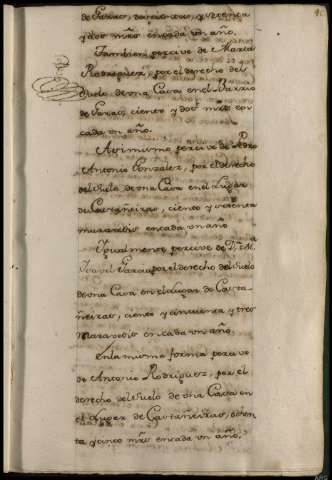 de Garai, doscientos, y sesenta
y dos mrs en cada un año.
Tambien percive de Maria
Rodriguez, por el derecho del
suelo de una Casa en el Barrio
de Garai, ciento y dos mrs en
cada un año.
Asimismo percive de Pedro
Antonio Gonzalez, por el derecho
del suelo de una Casa en el Lugar
de Castañeiras, ciento y sesenta
maravedis en cada un año
Ygualmente percive de Dn M.
Garcia por el derecho del suelo
de una Casa en el Lugar de Casta-
ñeiras, ciento y cinquenta y tres
maravedis en cada un año,
En la misma forma percive
de Antonio Rodriguez, por el
derecho del suelo de una Casa en
el Lugar de Castañeiras,
ta y cinco mrs en cada un año,